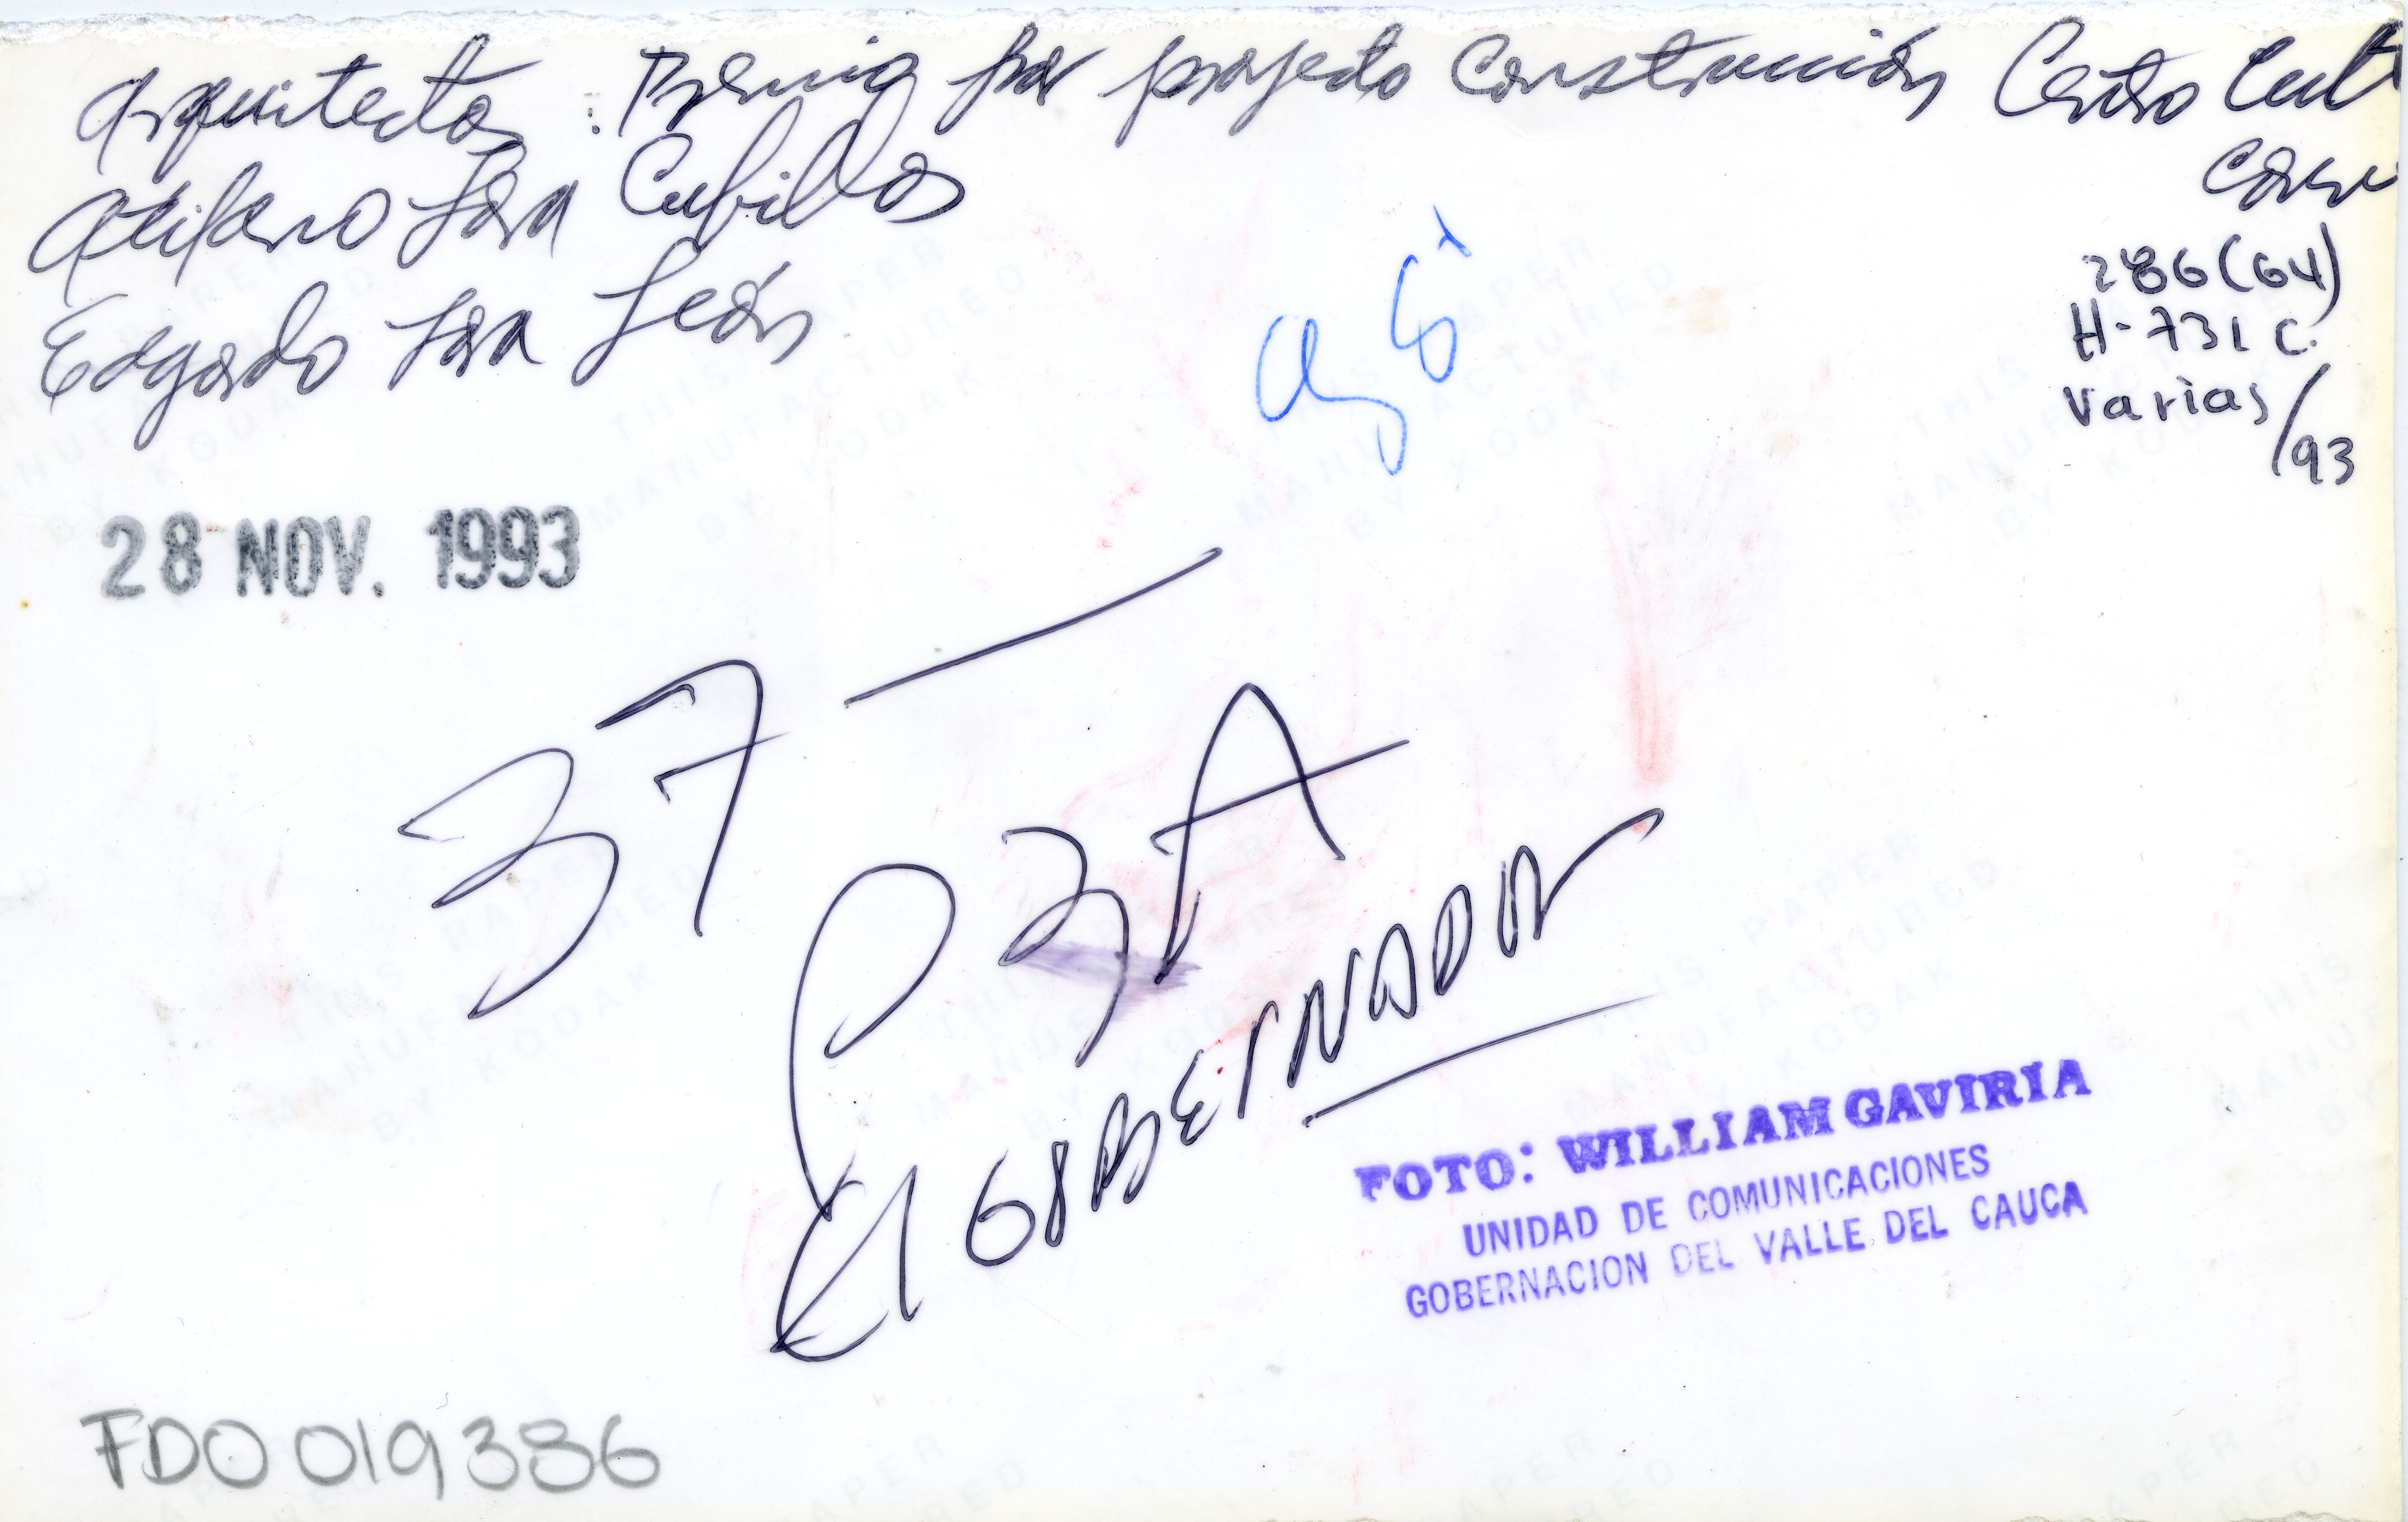 Arquitectos : Premio por proyecto Construcción Centro Cult
Lara Cubillos
Edgardo Lara León
286(64)
H-731 C.
Varias/93
28 NOV. 1993
37
P3A
El GOBERNADOR
FOTO: WILLIAM GAVIRIA
UNIDAD DE COMUNICACIONES
GOBERNACION DEL VALLE DEL CAUCA
FDO 019386
THIS PAPER
MANUFACTURED
BY KODAK